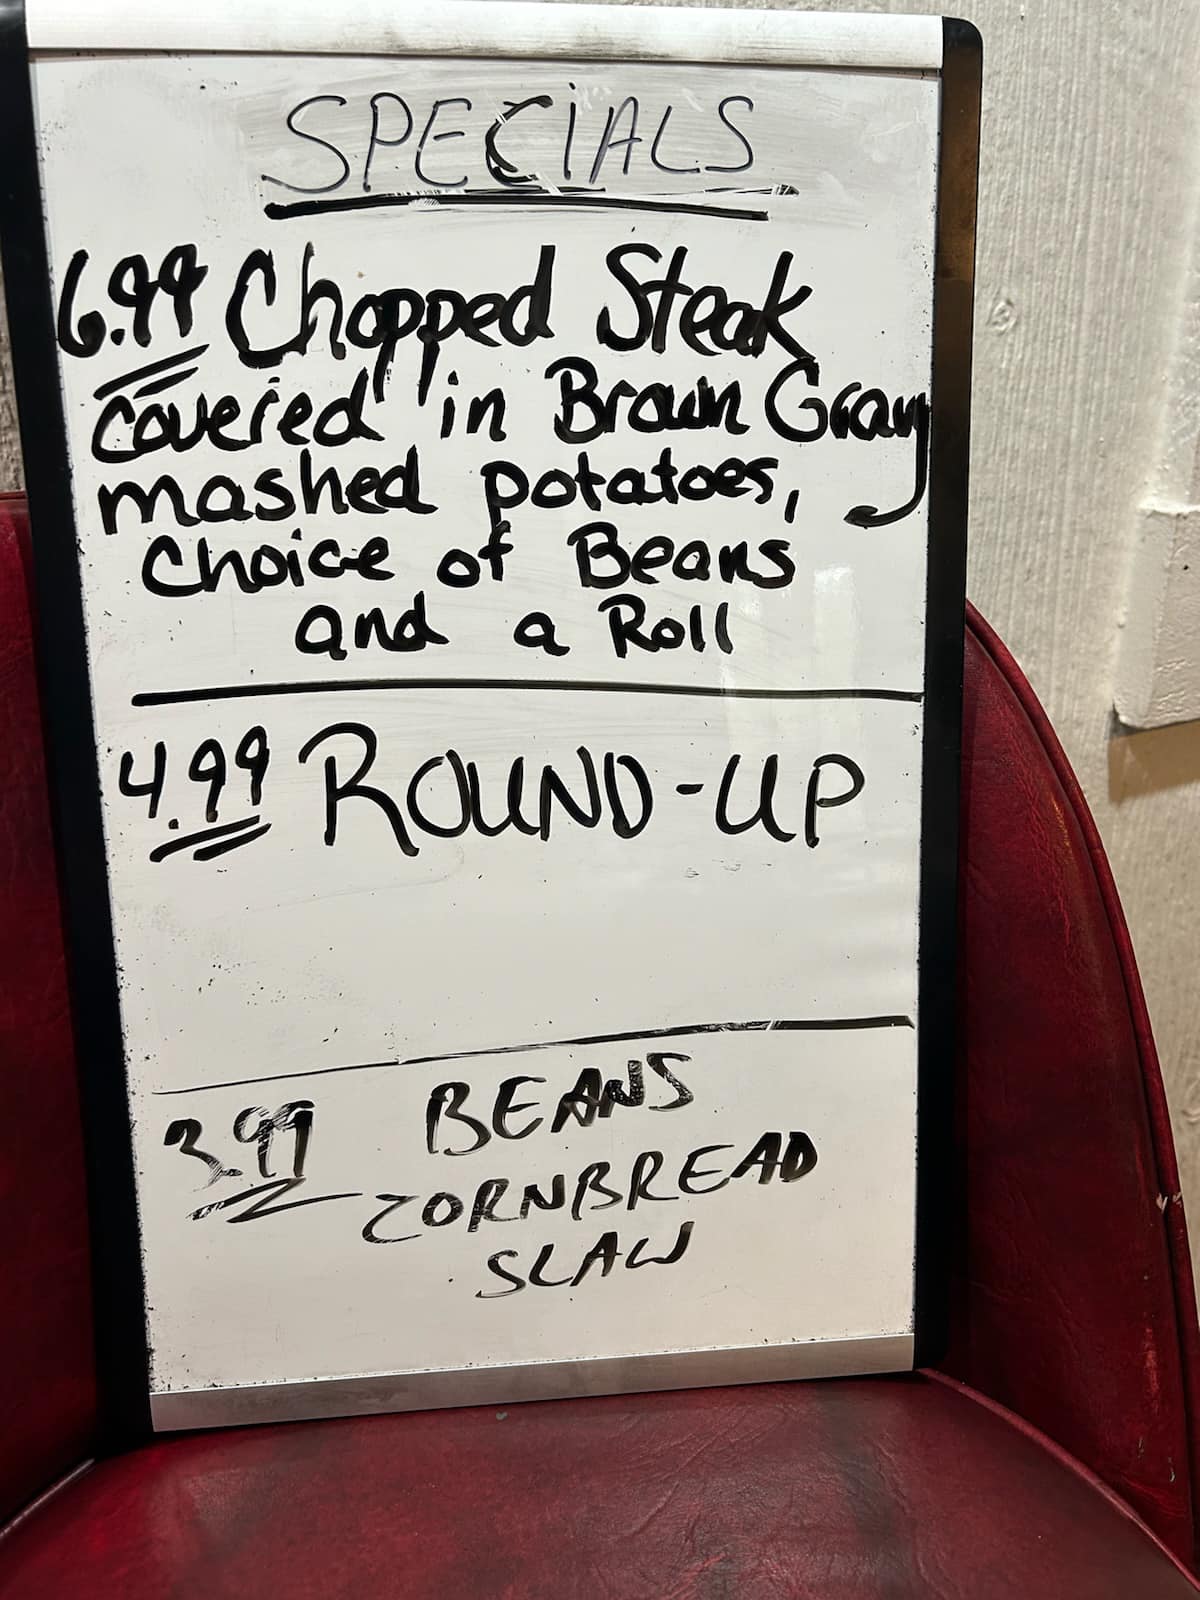 SPECIALS
6.99 Chopped Steak
covered in Brown Gravy
mashed potatoes,
Choice of Beans
and a Roll
4.99 ROUND-UP
3.99 BEANS
CORNBREAD
SLAW